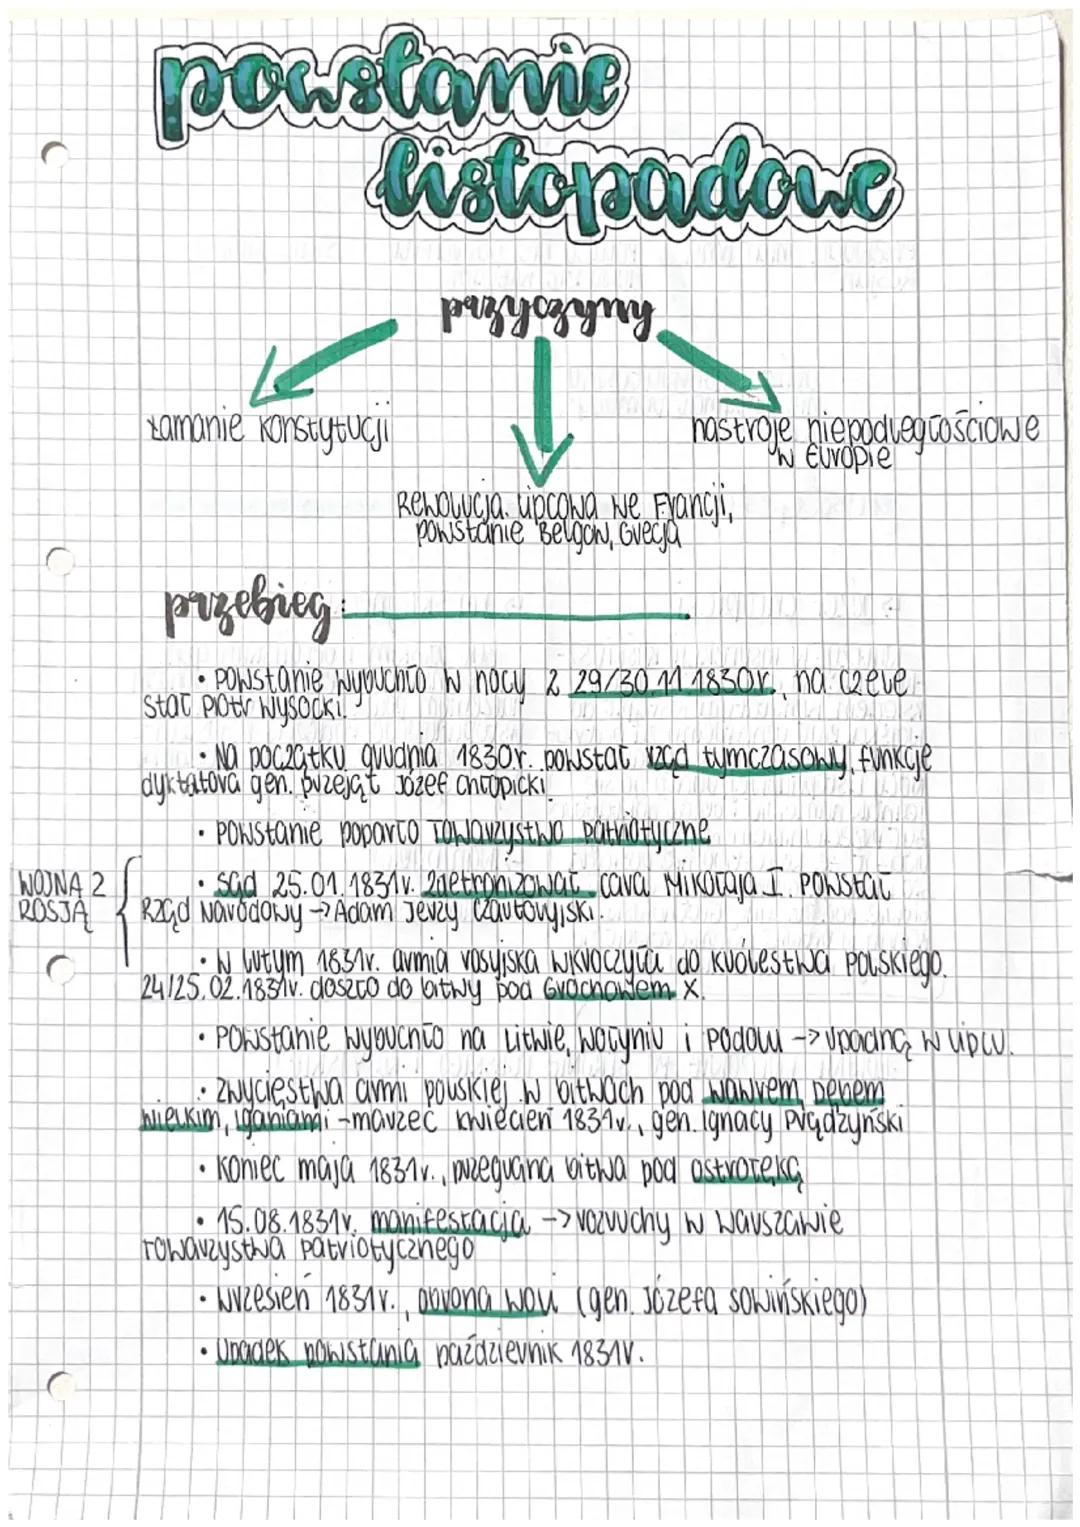 powstanie
listopadowe
przyczyny
łamanie konstytucji
nastroje niepodległościowe
w Europie
Rewolucja lipcowa we Francji,
powstanie Belgów, Grecja
przebieg:
• powstanie wybuchło w nocy z 29/30 11 1830r., na czele
stał Piotr Wysocki.
• Na początku grudnia 1830r. powstał rząd tymczasowy, funkcję
dyktatora gen. przejął Józef Chłopicki
• Powstanie poparło Towarzystwo Patriotyczne
WOJNA Z
ROSJĄ
• sąd 25.01.1831r. zdetronizował cara Mikołaja I. Powstał
Rząd Narodowy -> Adam Jerzy Czartoryjski.
• W lutym 1831r. armia rosyjska wkroczyła do Królestwa Polskiego.
24/25.02.1831r. doszło do bitwy pod Grochowem X.
• Powstanie wybuchło na Litwie, Wołyniu i Podolu -> upadną w lipcu.
• zwycięstwa armi polskiej w bitwach pod Wawrem, Dębem
Wielkim, Iganiami - marzec kwiecień 1831r., gen. Ignacy Prądzyński
• Koniec maja 1831r., przegrana bitwa pod Ostrołęką
• 15.08.1831r. manifestacja -> rozruchy w Warszawie
Towarzystwa Patriotycznego
• wrzesień 1831r., obrona Woli (gen. Józefa Sowińskiego)
• Upadek powstania październik 1831r.